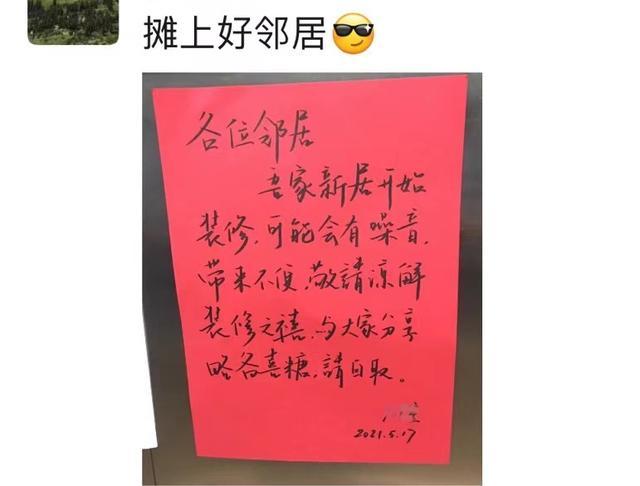 摊上好邻居😎
各位邻居
吾家新居开始
装修,可能会有噪音,
带来不便,敬請谅解
装修之禧,与大家分享
略备喜糖,請自取。
2021.5.17